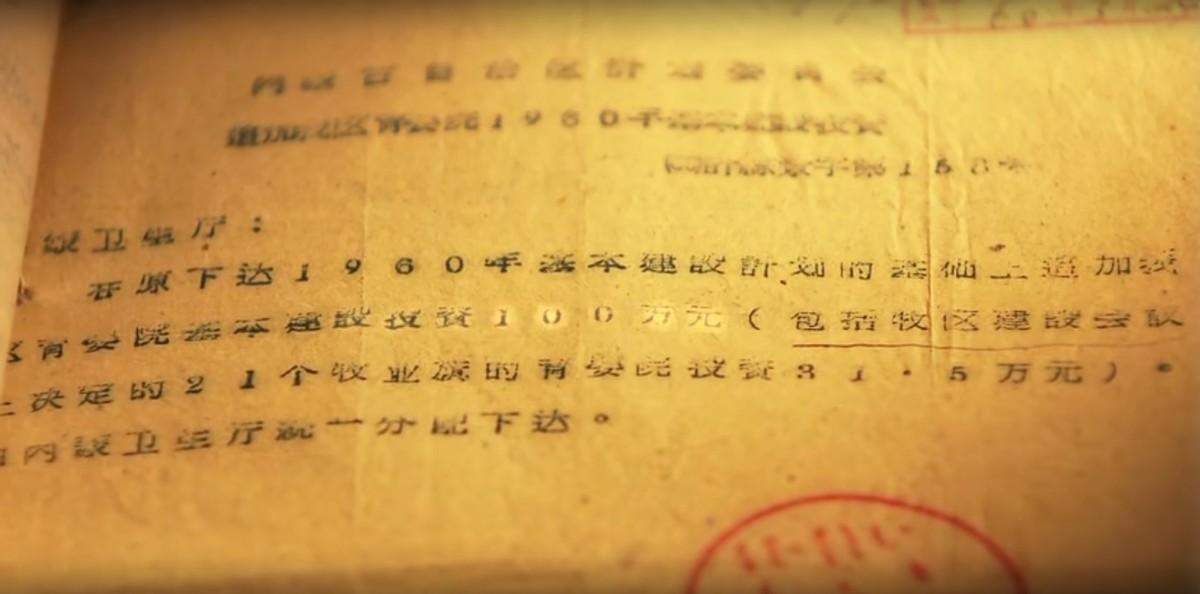 内蒙古自治区計划委員会
追加我区育婴院1960年基本建設投資
字第158号
蒙卫生厅：
在原下达1960年基本建設計划的基础上追加我
区育婴院基本建設投資100万元（包括牧区建設会議
上决定的21个牧业旗的育婴院投資31.5万元）。
由内蒙卫生厅統一分配下达。